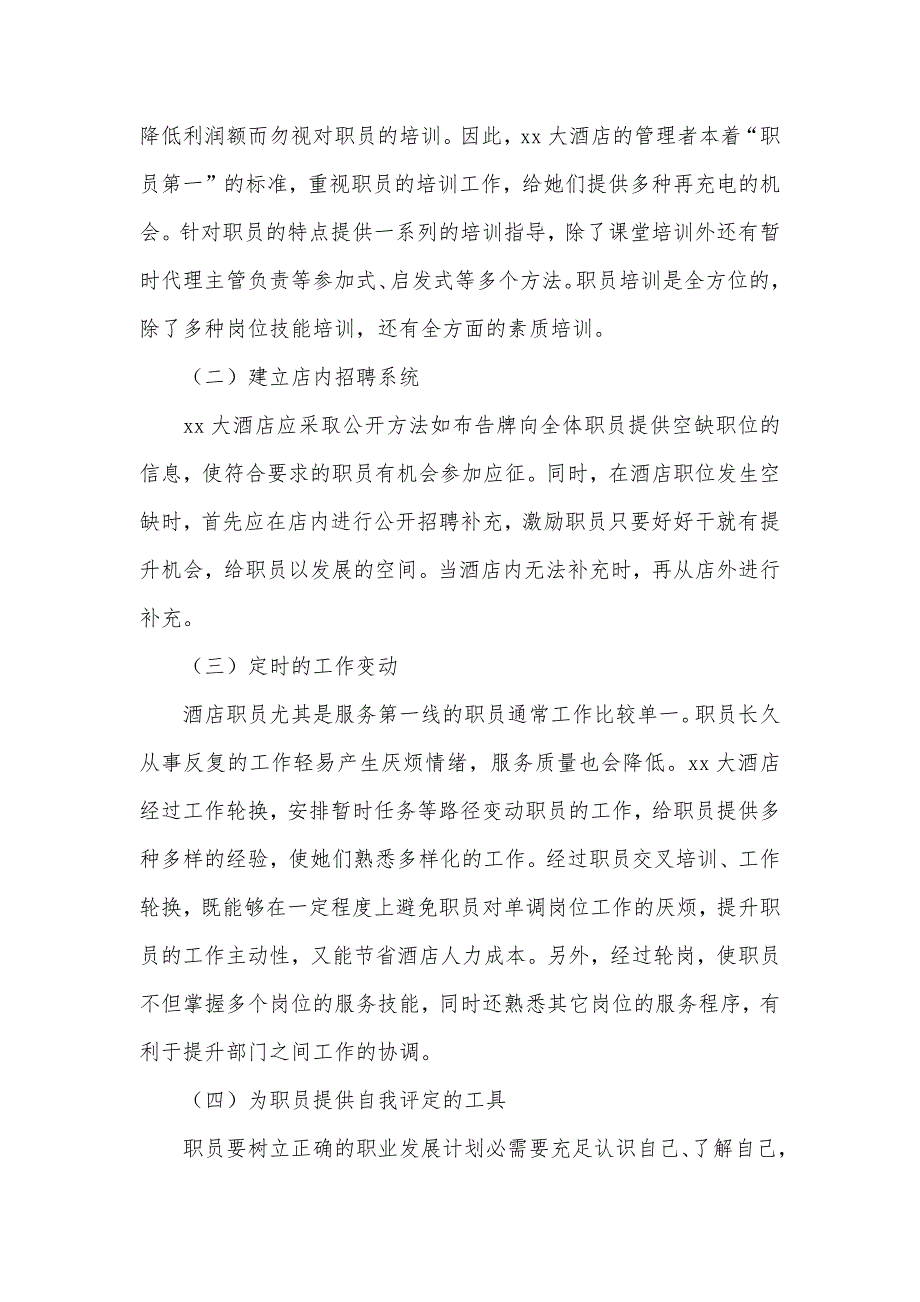 降低利润额而勿视对职员的培训。因此，xx 大酒店的管理者本着“职
员第一”的标准，重视职员的培训工作，给她们提供多种再充电的机
会。针对职员的特点提供一系列的培训指导，除了课堂培训外还有暂
时代理主管负责等参加式、启发式等多个方法。职员培训是全方位的，
除了多种岗位技能培训，还有全方面的素质培训。
（二）建立店内招聘系统
xx 大酒店应采取公开方法如布告牌向全体职员提供空缺职位的
信息，使符合要求的职员有机会参加应征。同时，在酒店职位发生空
缺时，首先应在店内进行公开招聘补充，激励职员只要好好干就有提
升机会，给职员以发展的空间。当酒店内无法补充时，再从店外进行
补充。
（三）定时的工作变动
酒店职员尤其是服务第一线的职员通常工作比较单一。职员长久
从事反复的工作轻易产生厌烦情绪，服务质量也会降低。xx 大酒店
经过工作轮换，安排暂时任务等路径变动职员的工作，给职员提供多
种多样的经验，使她们熟悉多样化的工作。经过职员交叉培训、工作
轮换，既能够在一定程度上避免职员对单调岗位工作的厌烦，提升职
员的工作主动性，又能节省酒店人力成本。另外，经过轮岗，使职员
不但掌握多个岗位的服务技能，同时还熟悉其它岗位的服务程序，有
利于提升部门之间工作的协调。
（四）为职员提供自我评定的工具
职员要树立正确的职业发展计划必需要充足认识自己、了解自己，